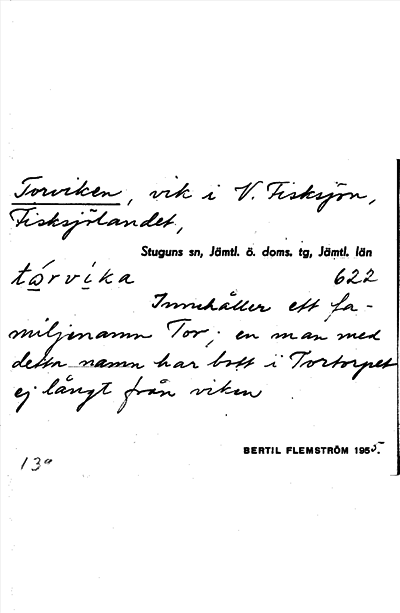 Torviken, vik i V. Fisksjön,
Fisksjölandet,
Stuguns sn, Jämtl. ö. doms. tg, Jämtl. län
tå̱rvi̱ka 622
Innehåller ett fa-
miljenamn Tor; en man med
detta namn har bott i Tortorpet
ej långt från viken
BERTIL FLEMSTRÖM 1955.
13a